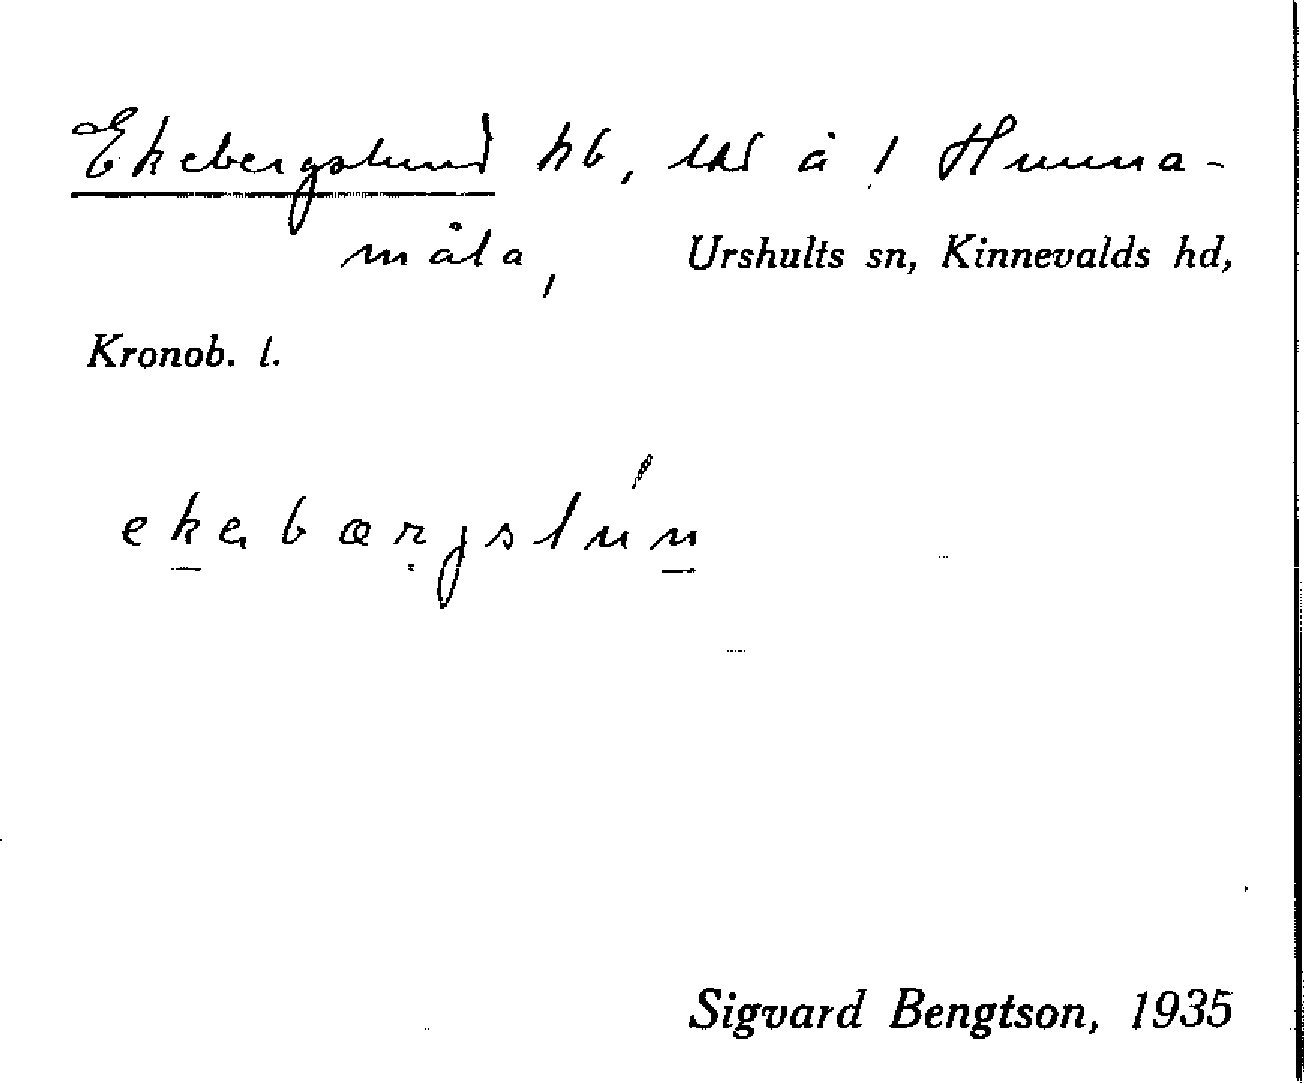 Ekebergslund hb, lhd å 1 Hunna-
måla, Urshults sn, Kinnevalds hd,
Kronob. l.
ekabærgslún
Sigvard Bengtson, 1935